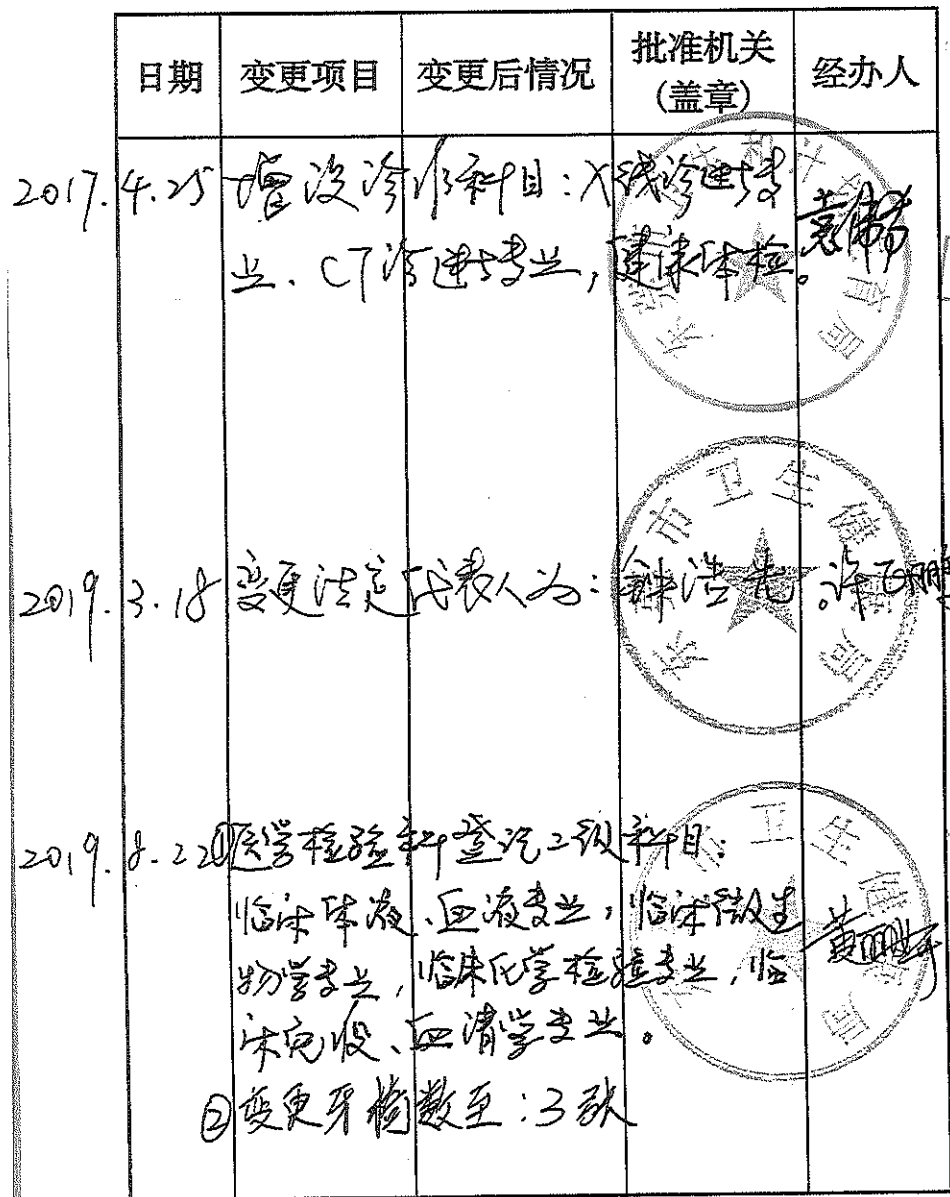 日期 变更项目 变更后情况 批准机关(盖章) 经办人
2017.4.25 增设诊疗科目:X线诊断专
业、CT诊断专业,健康体检。
2019.3.18 变更法定代表人为: 浩
市卫生健 局
2019.8.22 ①医学检验科登记二级科目:
临床体液、血液专业,临床微生
物学专业,临床化学检验专业,临
床免疫、血清学专业。
②变更牙椅数至:3张
卫生健 局